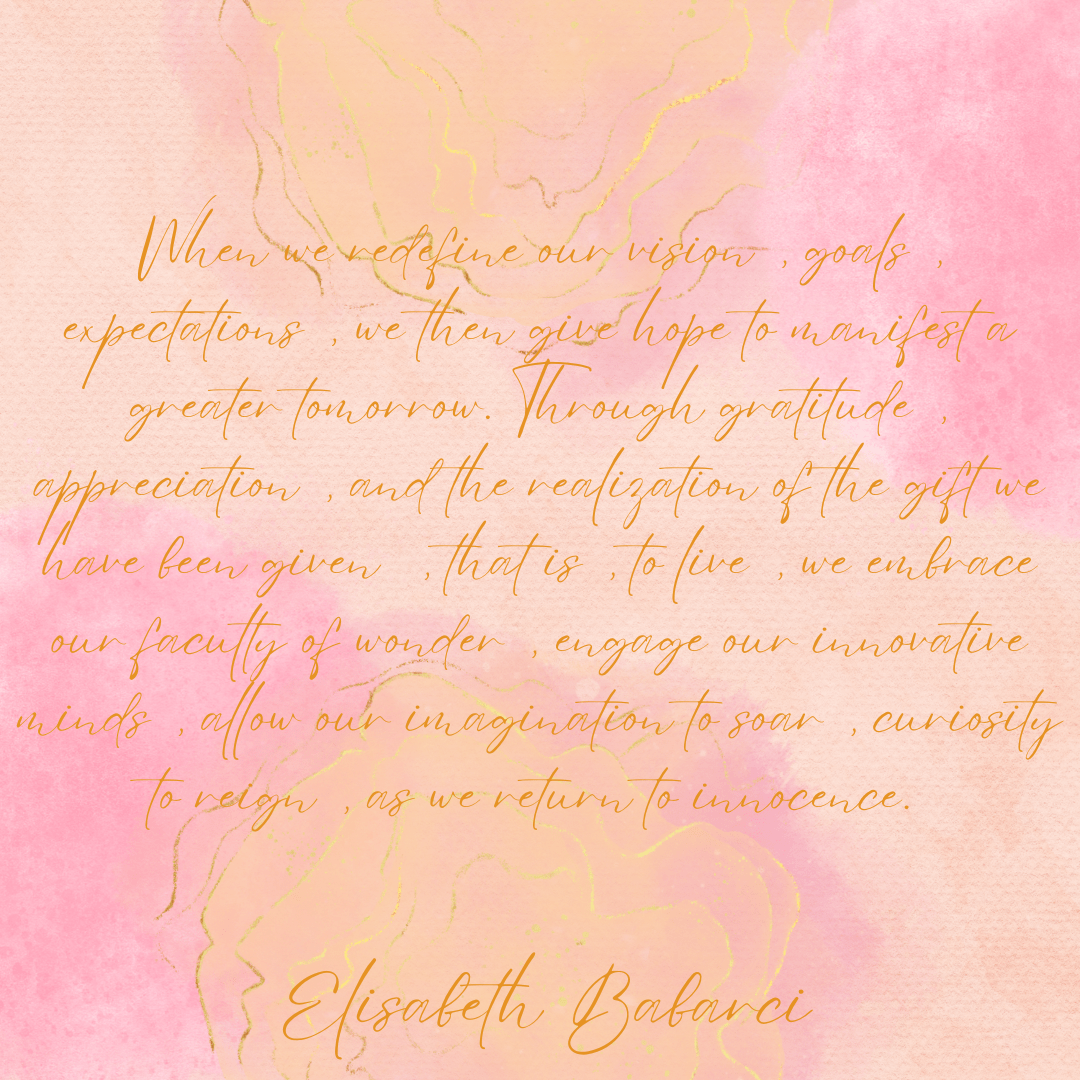 When we redefine our vision , goals ,
expectations , we then give hope to manifest a
greater tomorrow. Through gratitude ,
appreciation , and the realization of the gift we
have been given , that is , to live , we embrace
our faculty of wonder , engage our innovative
minds , allow our imagination to soar , curiosity
to reign , as we return to innocence.
Elisabeth Babarci